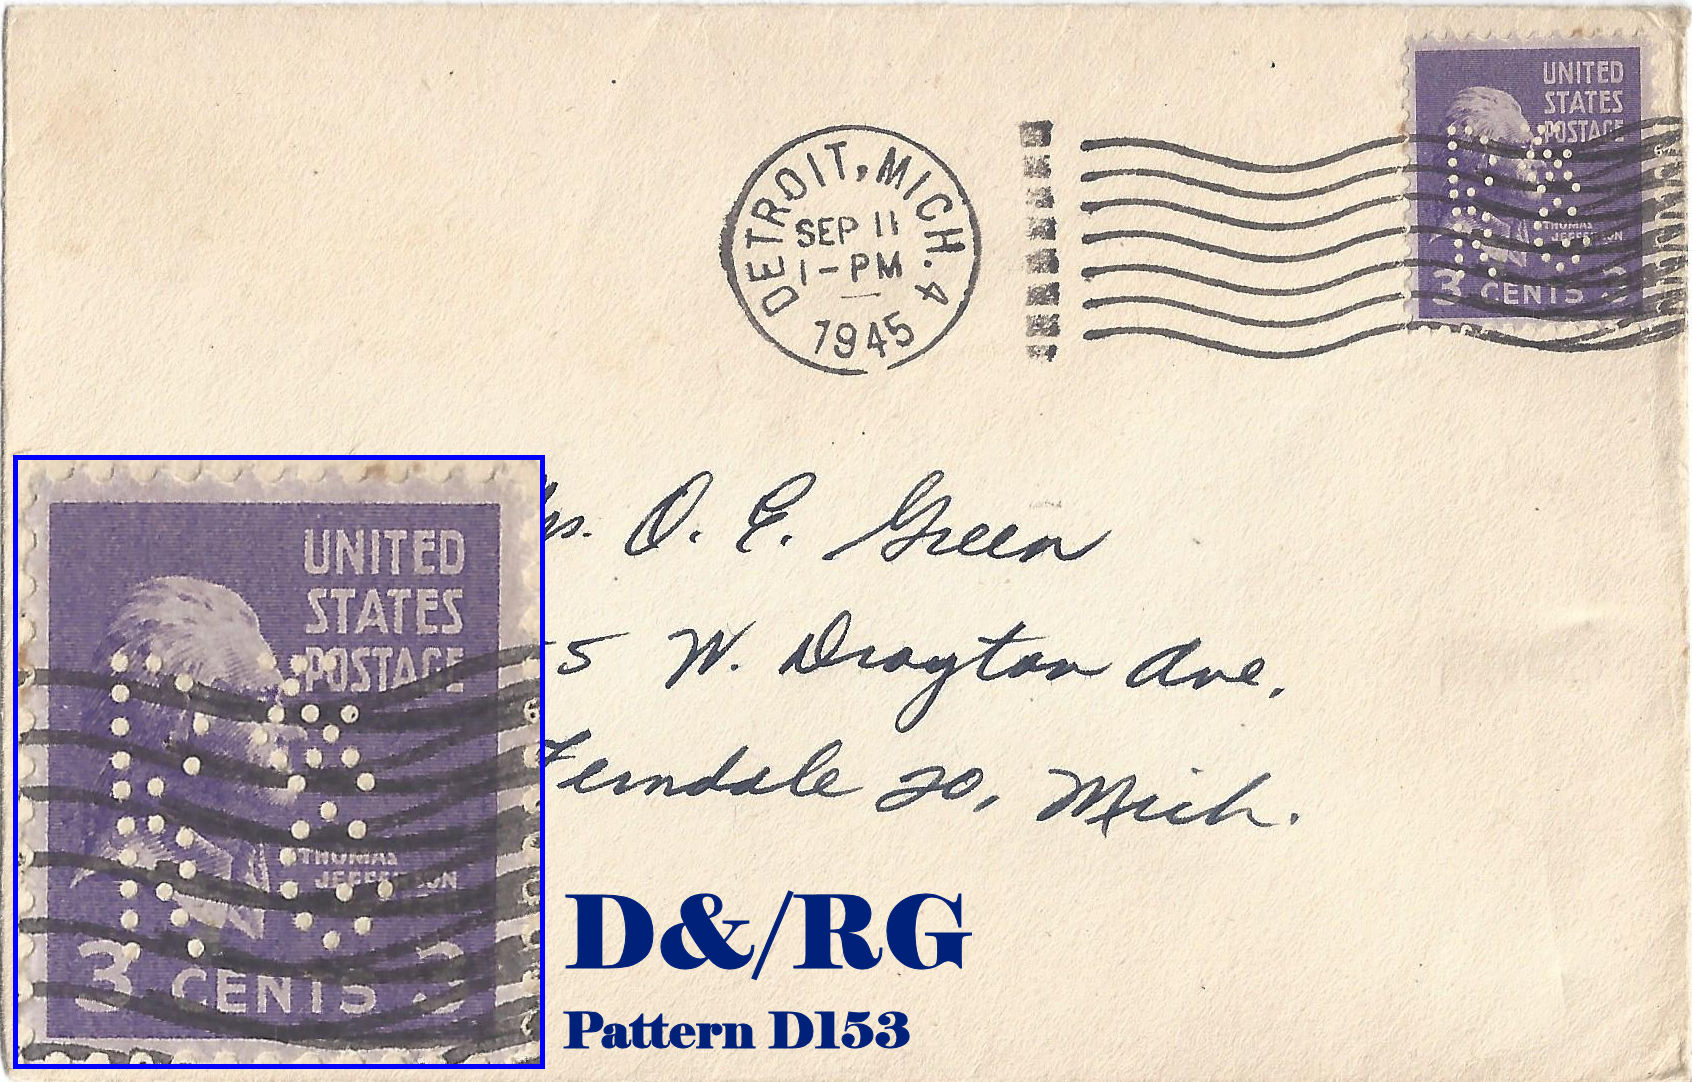 UNITED
STATES
POSTAGE
THOMAS
JEFFERSON
3 CENTS 3
DETROIT, MICH. 4
SEP 11
1-PM
1945
O. E. Green
5 W. Drayton Ave,
Ferndale 20, Mich.
UNITED
STATES
POSTAGE
THOMAS
JEFFERSON
3 CENTS 3
D&/RG
Pattern D153